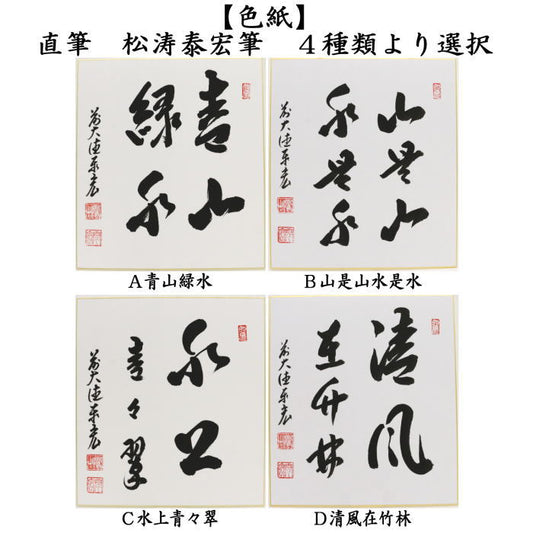 【色紙】
直筆　松涛泰宏筆　４種類より選択
青山
緑水
前大徳泰宏
Ａ青山緑水
山是山
水是水
前大徳泰宏
Ｂ山是山水是水
水上
青々翠
前大徳泰宏
Ｃ水上青々翠
清風
在竹林
前大徳泰宏
Ｄ清風在竹林